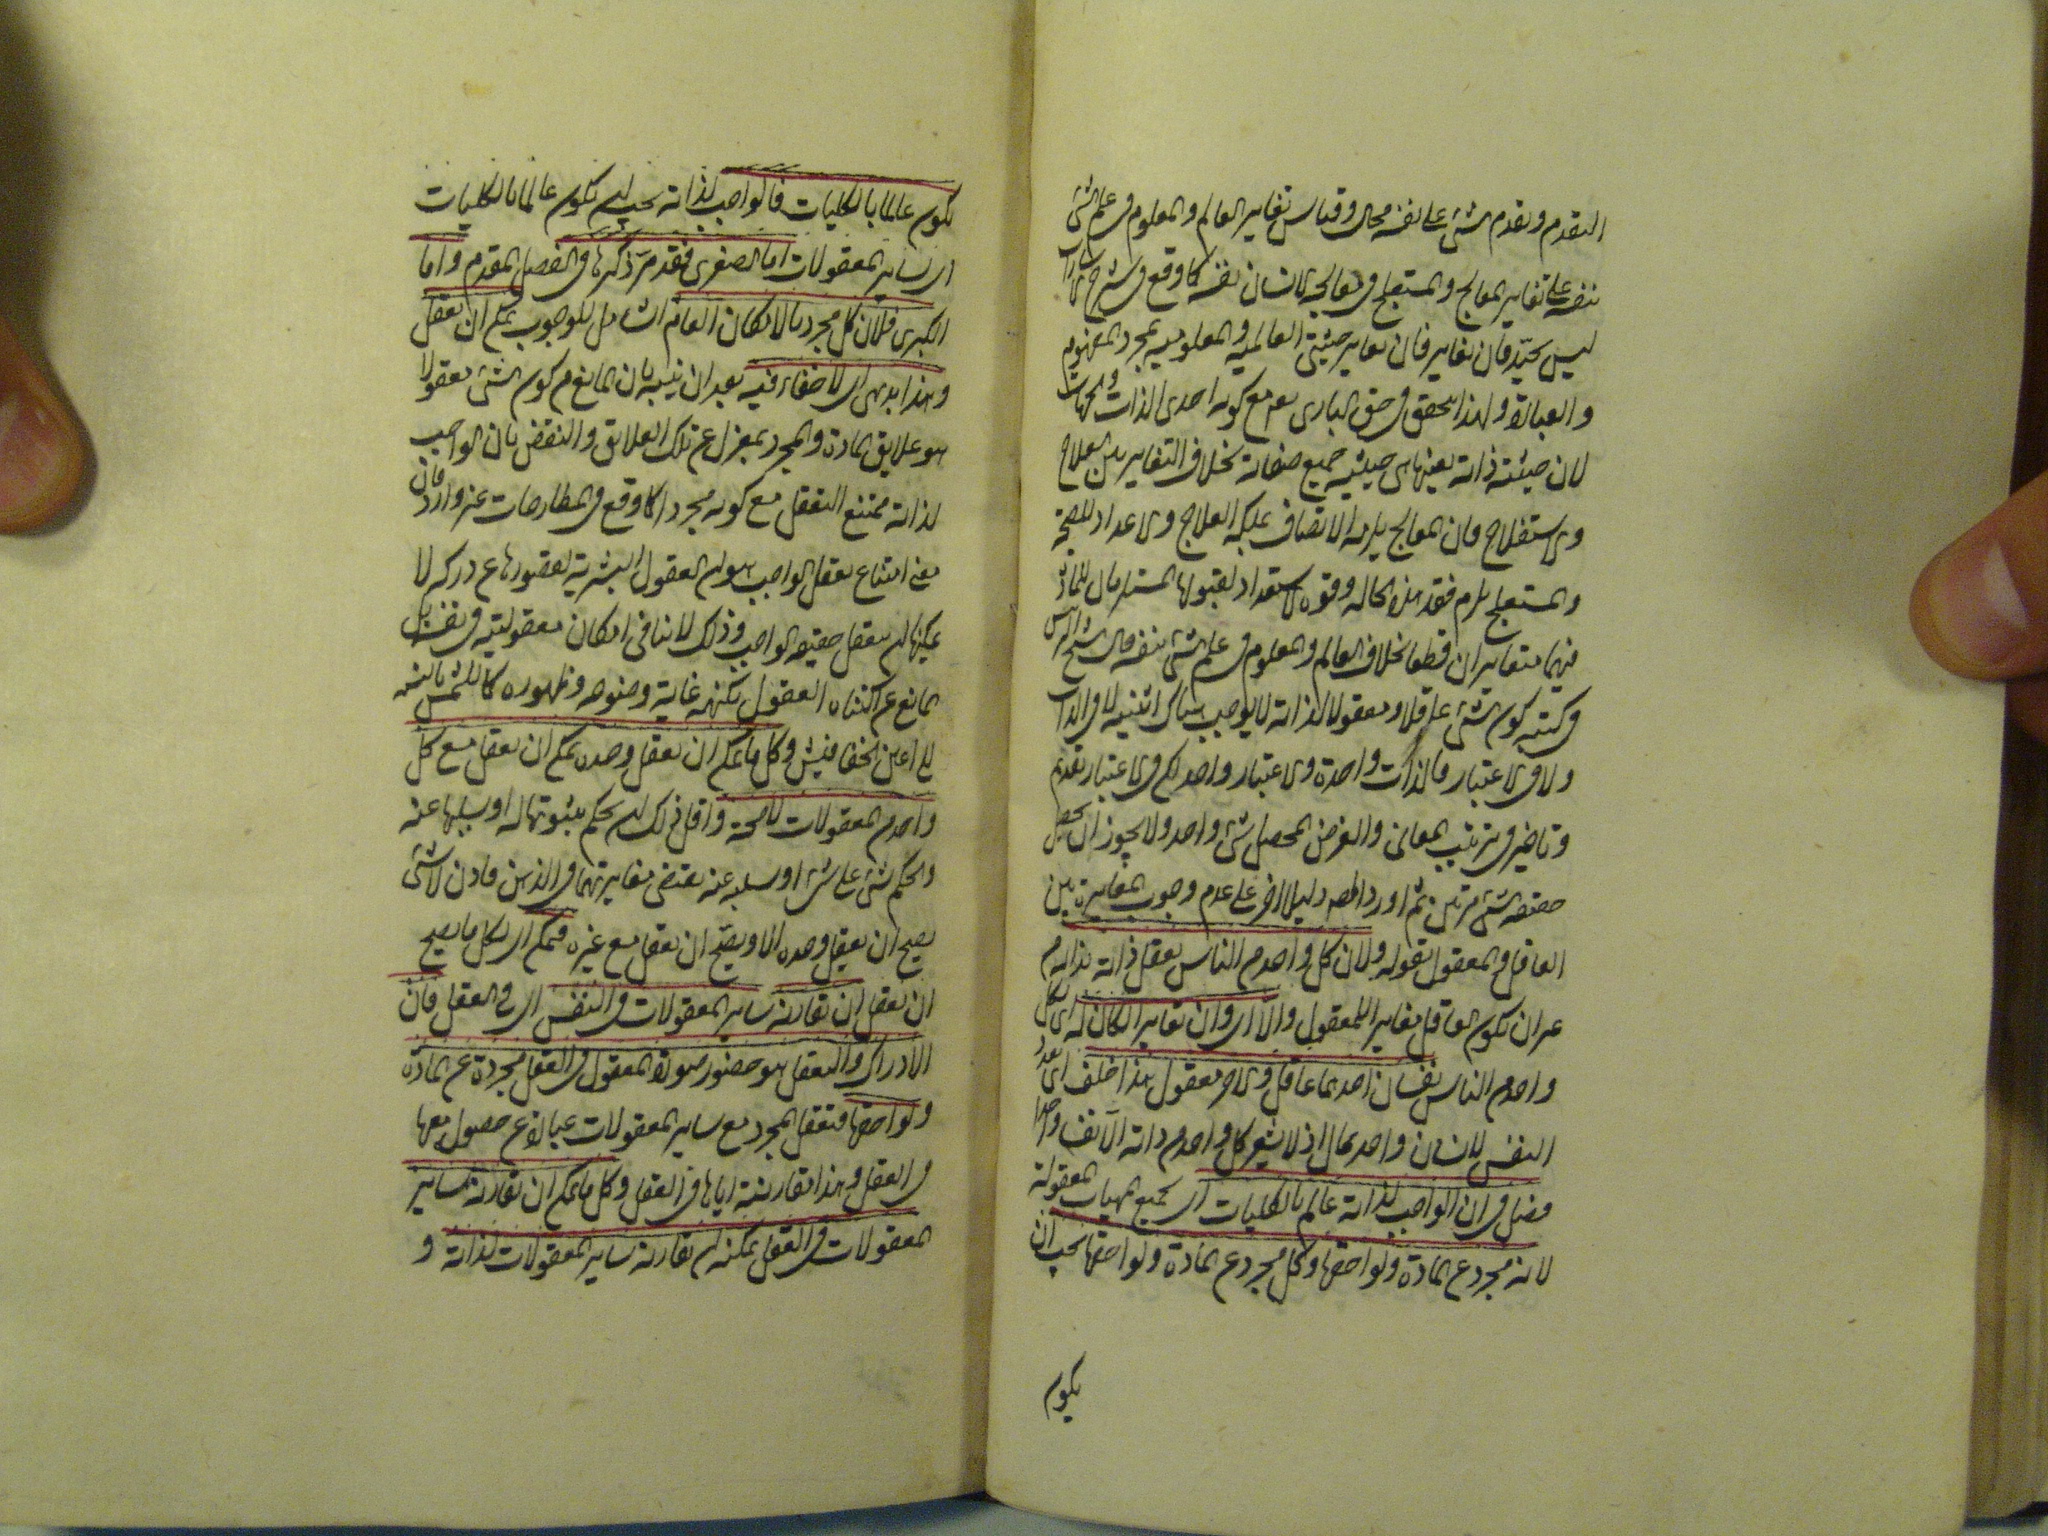 التقدم وتقدم الشئ على نفسه محال وقياس تغاير العالم والمعلوم فى علم الشئ
بنفسه على تغاير المعالج والمستعلج فى معالجة الانسان نفسه كما وقع فى شرح
ليس بجيّد فان تغاير فان تغاير حيثيتى العالمية والمعلومية بمجرد المفهوم
والعبارة ولهذا يتحقق فى حق البارى تعم مع كونه احدى الذات والجهات
لان حيثية ذاته بعينها هى حيثية جميع صفاته بخلاف التغاير بين العلاج
والاستعلاج فان المعالج يلزمه الاتصاف بملكة العلاج والاعداد للصحة
والمستعلج يلزم فقد هذه الحالة وقوة الاستعداد لقبولها المستلزمان للمادة
فهما متغايران قطعا بخلاف العالم والمعلوم فى علم الشئ بنفسه قال الشيخ الرئيس
فى كتبه كون الشئ عاقلا ومعقولا لذاته لا يوجب هناك اثنينية لا فى الذات
ولا فى الاعتبار فالذات واحدة والاعتبار واحد لكن فى الاعتبار تقديم
وتاخير فى ترتيب المعانى والغرض المحصل شئ واحد ولا يجوز ان يحصل
حقيقة الشئ مرتين ثم اورد المص دليلا اخر على عدم وجوب المغايرة بين
العاقل والمعقول بقوله ولان كل واحد من الناس يعقل ذاته بذاته من
غير ان يكون العاقل مغايرا للمعقول والا اى وان تغايرا لكان له اى لكل
واحد من الناس نفسان احدهما عاقل والاخر معقول هذا خلف اى تعدد
النفس لانسان واحد محال اذ لا يشعر كل واحد من ذاته الا نفسا واحدا
فصل فى ان الواجب لذاته عالم بالكليات اى بجميع المهيات المعقولة
لانه مجرد عن المادة ولواحقها وكل مجرد عن المادة ولواحقها يجب ان
يكون
يكون عالما بالكليات فالواجب لذاته يجب ان يكون عالما بالكليات
اى ساير المعقولات اما الصغرى فقد مرّ ذكرها فى الفصل المقدم واما
الكبرى فلان كل مجرد بالامكان العام الشامل للوجوب يمكن ان يعقل
وهذا بديهى اى لا خفاء فيه بعد ان ينبه بان المانع من كون الشئ معقولا
هو علايق المادة والمجرد بمعزل عن تلك العلايق والنقض بان الواجب
لذاته ممتنع التعقل مع كونه مجردا كما وقع فى المطارحات غير وارد فان
معنى امتناع تعقل الواجب هو ان العقول البشرية لقصورها عن دركه لا
يمكنها ان يتعقل حقيقة الواجب وذلك لا ينافى امكان معقوليته فى نفسه بل
المانع عن اكتناه العقول بكنهه غاية وضوحه وظهوره كما للشمس بالنسبة
الى اعين الخفافيش وكل ما يمكن ان يعقل وحده يمكن ان يعقل مع كل
واحد من المعقولات لا محة واقل ذلك ان يحكم بثبوتها له او سلبها عنه
والحكم بشئ على شئ او سلبه عنه يقتضى مغايرتهما فى الذهن فاذن لا شئ
يصح ان يعقل وحده الا ويصح ان يعقل مع غيره فيمكن اى لكل ما يصح
ان يعقل ان تقارنه ساير المعقولات فى النفس اى فى العقل فان
الادراك والتعقل هو حضور صورة المعقول فى العقل مجردة عن المادة
ولواحقها فتعقل المجرد مع ساير المعقولات عبارة عن حصوله معها
فى العقل وهذا مقارنته اياها فى العقل وكل ما يمكن ان تقارنه ساير
المعقولات فى العقل يمكنه ان تقارنه ساير المعقولات لذاته و